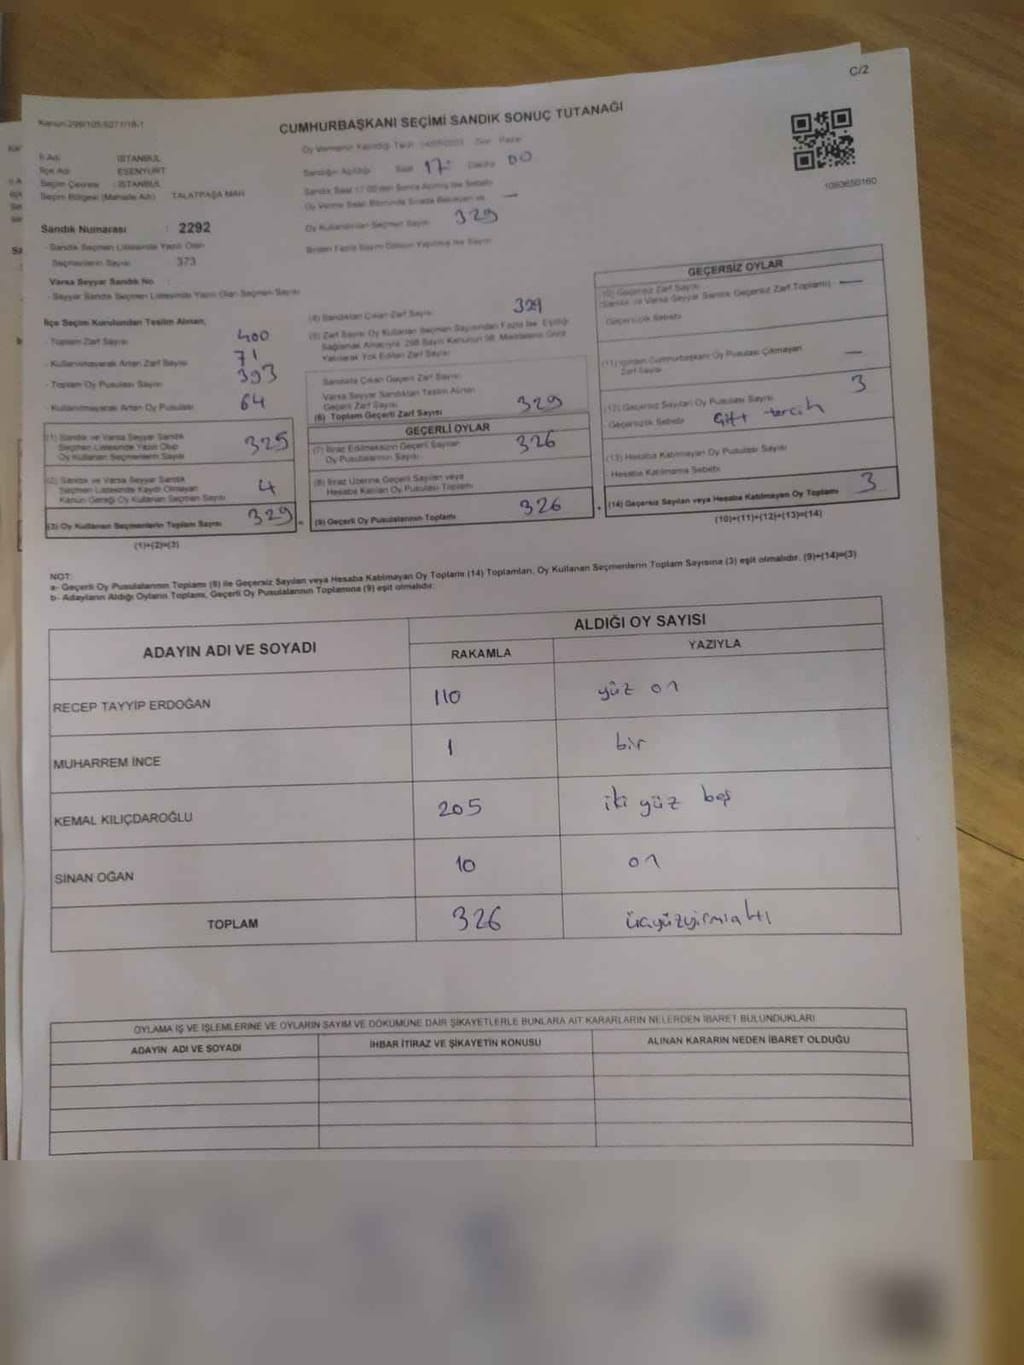 C/2
Kanun:298/105-6271/18-1
CUMHURBAŞKANI SEÇİMİ SANDIK SONUÇ TUTANAĞI
İl Adı : İSTANBUL
İlçe Adı : ESENYURT
Seçim Çevresi : İSTANBUL
Seçim Bölgesi (Mahalle Adı) : TALATPAŞA MAH
Oy Vermenin Yapıldığı Tarih 14/05/2023 Gün Pazar
Sandığın Açıldığı Saat 17: Dakika 00
Sandık Saat 17:00'den Sonra Açılmış İse Sebebi
Oy Verme Saati Bitiminde Sırada Bekleyen ve —
Oy Kullandırılan Seçmen Sayısı 329
Birden Fazla Sayım Döküm Yapılmış İse Sayısı
1093650160
Sandık Numarası : 2292
- Sandık Seçmen Listesinde Yazılı Olan
Seçmenlerin Sayısı : 373
Varsa Seyyar Sandık No :
- Seyyar Sandık Seçmen Listesinde Yazılı Olan Seçmen Sayısı
İlçe Seçim Kurulundan Teslim Alınan;
- Toplam Zarf Sayısı 400
- Kullanılmayarak Artan Zarf Sayısı 71
- Toplam Oy Pusulası Sayısı 393
- Kullanılmayarak Artan Oy Pusulası 64
(1) Sandık ve Varsa Seyyar Sandık
Seçmen Listesinde Yazılı Olup
Oy Kullanan Seçmenlerin Sayısı 325
(2) Sandık ve Varsa Seyyar Sandık
Seçmen Listesinde Kaydı Olmayan
Kanun Gereği Oy Kullanan Seçmen Sayısı 4
(3) Oy Kullanan Seçmenlerin Toplam Sayısı 329
(1)+(2)=(3)
(4) Sandıktan Çıkan Zarf Sayısı 329
(5) Zarf Sayısı Oy Kullanan Seçmen Sayısından Fazla İse, Eşitliği
Sağlamak Amacıyla 298 Sayılı Kanunun 98. Maddesine Göre
Yakılarak Yok Edilen Zarf Sayısı
Sandıkta Çıkan Geçerli Zarf Sayısı
Varsa Seyyar Sandıktan Teslim Alınan
Geçerli Zarf Sayısı
(6) Toplam Geçerli Zarf Sayısı 329
GEÇERLİ OYLAR
(7) İtiraz Edilmeksizin Geçerli Sayılan
Oy Pusulalarının Sayısı 326
(8) İtiraz Üzerine Geçerli Sayılan veya
Hesaba Katılan Oy Pusulası Toplamı
(9) Geçerli Oy Pusulalarının Toplamı 326
GEÇERSİZ OYLAR
(10) Geçersiz Zarf Sayısı
(Sandık ve Varsa Seyyar Sandık Geçersiz Zarf Toplamı) —
Geçersizlik Sebebi
(11) İçinden Cumhurbaşkanı Oy Pusulası Çıkmayan
Zarf Sayısı —
(12) Geçersiz Sayılan Oy Pusulası Sayısı 3
Geçersizlik Sebebi Çift tercih
(13) Hesaba Katılmayan Oy Pusulası Sayısı
Hesaba Katılmama Sebebi
(14) Geçersiz Sayılan veya Hesaba Katılmayan Oy Toplamı 3
(10)+(11)+(12)+(13)=(14)
NOT:
a- Geçerli Oy Pusulalarının Toplamı (9) ile Geçersiz Sayılan veya Hesaba Katılmayan Oy Toplamı (14) Toplamları, Oy Kullanan Seçmenlerin Toplam Sayısına (3) eşit olmalıdır. (9)+(14)=(3)
b- Adayların Aldığı Oyların Toplamı, Geçerli Oy Pusulalarının Toplamına (9) eşit olmalıdır.
ADAYIN ADI VE SOYADI ALDIĞI OY SAYISI
RAKAMLA YAZIYLA
RECEP TAYYİP ERDOĞAN 110 yüz on
MUHARREM İNCE 1 bir
KEMAL KILIÇDAROĞLU 205 iki yüz beş
SİNAN OĞAN 10 on
TOPLAM 326 üçyüzyirmialtı
OYLAMA İŞ VE İŞLEMLERİNE VE OYLARIN SAYIM VE DÖKÜMÜNE DAİR ŞİKAYETLERLE BUNLARA AİT KARARLARIN NELERDEN İBARET BULUNDUKLARI
ADAYIN ADI VE SOYADI İHBAR İTİRAZ VE ŞİKAYETİN KONUSU ALINAN KARARIN NEDEN İBARET OLDUĞU